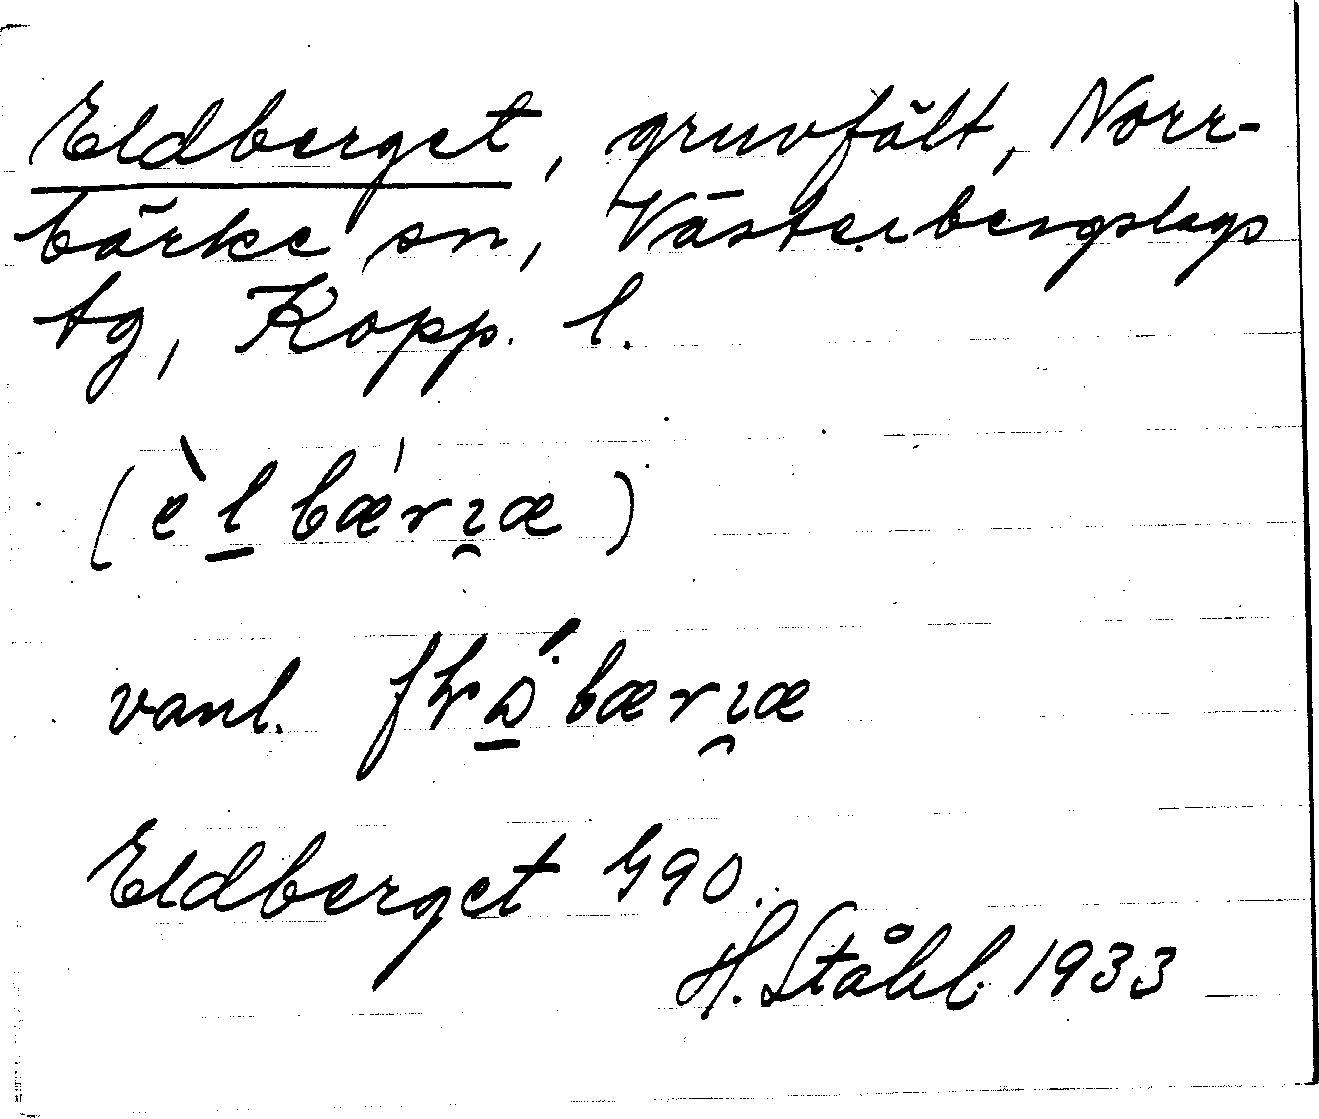 Eldberget, gruvfält, Norr-
bärke sn, Västerbergslags
tg, Kopp. l.
(èl bæ'rɿæ)
vanl.
Eldberget G90.
H. Ståhl. 1933